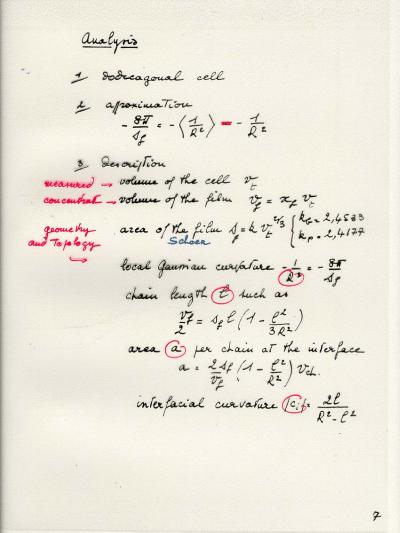 Analysis
1 dodecagonal cell
2 aproximation
- 8π/s_f = - ⟨1/R²⟩ = - 1/R²
3 description
measured → volume of the cell v_t
concentrat. → volume of the film v_f = x_f v_t
geometry and Topology → area of the film s_f = k v_t^2/3 { k_G = 2,4533
k_P = 2,4177
Schoen
local Gaussian curvature - 1/R² = - 8π/s_f
chain length l such as
v_f/2 = s_f l (1 - l²/3R²)
area a per chain at the interface
a = 2 s_f/v_f (1 - l²/R²) v_ch.
interfacial curvature |c_i| = 2l/R² - l²
7